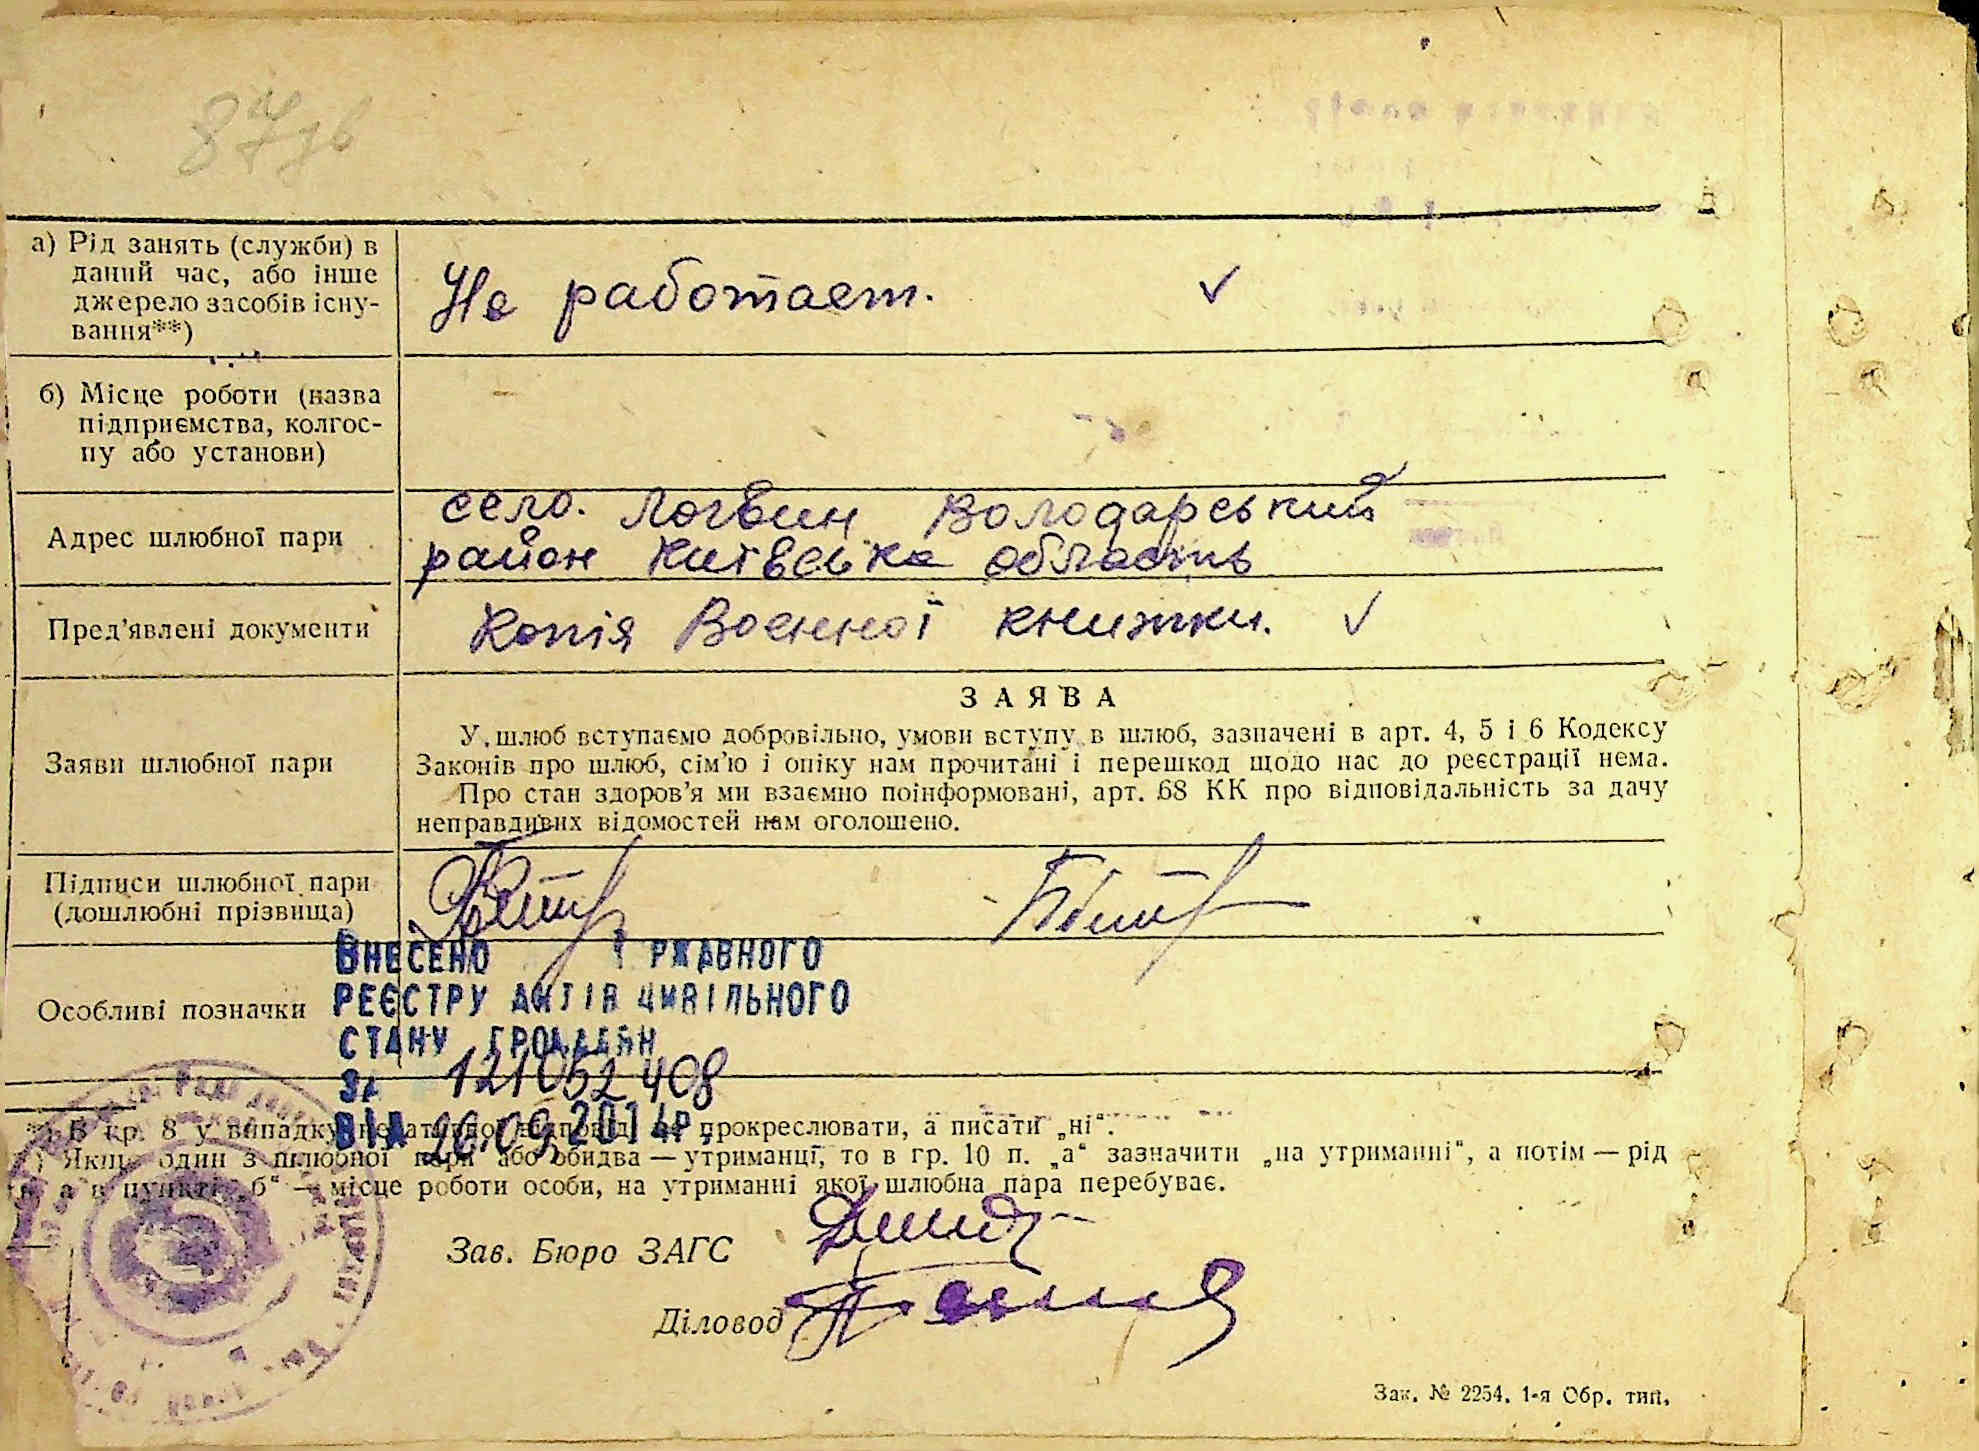 87зв
а) Рід занять (служби) в
даний час, або інше
джерело засобів існу-
вання**)
Не работает.
б) Місце роботи (назва
підприємства, колгос-
пу або установи)
Адрес шлюбної пари
село. Логвин Володарський
район Київська область
Пред'явлені документи
Копія Воєнної книжки.
Заяви шлюбної пари
ЗАЯВА
У шлюб вступаємо добровільно, умови вступу в шлюб, зазначені в арт. 4, 5 і 6 Кодексу
Законів про шлюб, сім'ю і опіку нам прочитані і перешкод щодо нас до реєстрації нема.
Про стан здоров'я ми взаємно поінформовані, арт. 68 КК про відповідальність за дачу
неправдивих відомостей нам оголошено.
Підписи шлюбної пари
(дошлюбні прізвища)
Особливі позначки
ВНЕСЕНО РЖАВНОГО
РЕЄСТРУ АКТІВ ЦИВІЛЬНОГО
СТАНУ ГРОМАДЯН
ЗА 121052408
ВІД 26.09.2014р.
*) В гр. 8 у випадку негативної відповіді не прокреслювати, а писати „ні“.
) Якщо один з шлюбної пари або обидва — утриманці, то в гр. 10 п. „а“ зазначити „на утриманні“, а потім — рід
а в пункті „б“ — місце роботи особи, на утриманні якої шлюбна пара перебуває.
Зав. Бюро ЗАГС
Діловод
Зак. № 2254. 1-я Обр. тип.